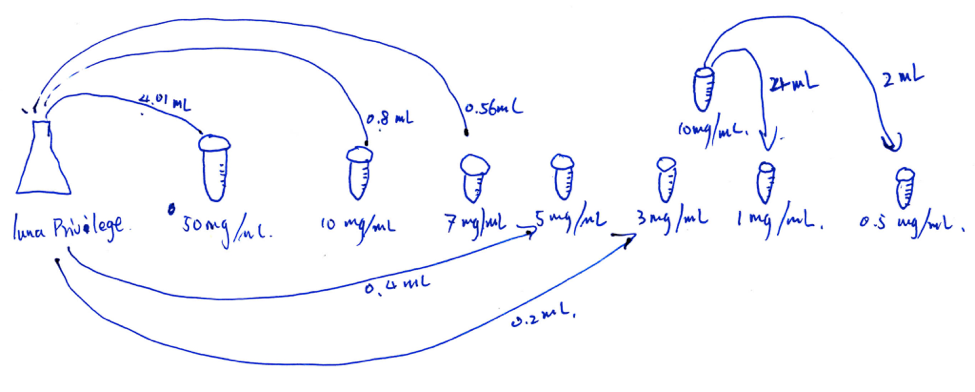 4.01 mL
0.8 mL
0.56mL
2 mL
10mg/mL.
luna Privilege.
50 mg/mL.
10 mg/mL
7 mg/mL
5 mg/mL
3 mg/mL
1 mg/mL.
0.5 mg/mL.
0.4 mL
0.2 mL.